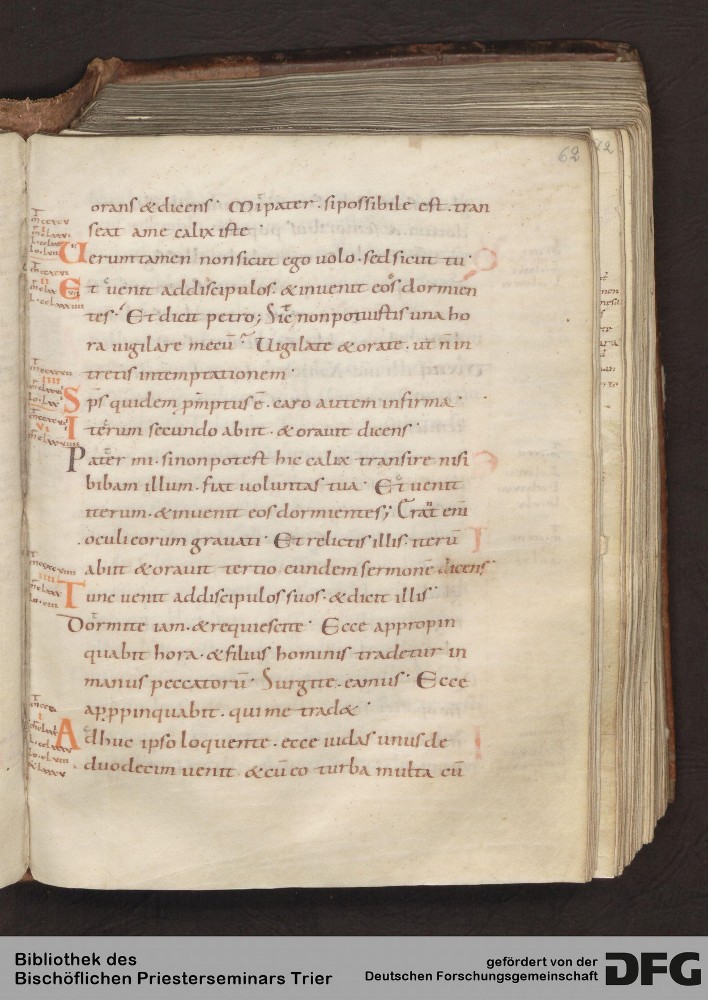 62
orans & dicens· Mi pater· si possibile est· tran
seat a me calix iste·
Uerumtamen non sicut ego uolo· sed sicut tu·
Et uenit ad discipulos· & inuenit eos dormien
tes· Et dicit petro; Sic non potuistis una ho
ra uigilare mecū· Uigilate & orate· ut n̄ in
tretis in temptationem·
Sp̄s quidem prōmptus ē· caro autem infirma·
Iterum secundo abiit· & orauit dicens·
Pater mi· si non potest hic calix transire nisi
bibam illum· fiat uoluntas tua· Et uenit
iterum· & inuenit eos dormientes; Erāt eni᷒
oculi eorum grauati· Et relictis illis· iterū
abiit & orauit tertio eundem sermonē dicens·
Tunc uenit ad discipulos suos· & dicit illis·
Dormite iam· & requiescite· Ecce appropin
quabit hora· & filius hominis tradetur in
manus peccatorū· Surgite· eamus· Ecce
appropinquabit· qui me trad&·
Adhuc ipso loquente· ecce iudas unus de
duodecim uenit· & cū eo turba multa cū
Bibliothek des
Bischöflichen Priesterseminars Trier
gefördert von der
Deutschen Forschungsgemeinschaft
DFG